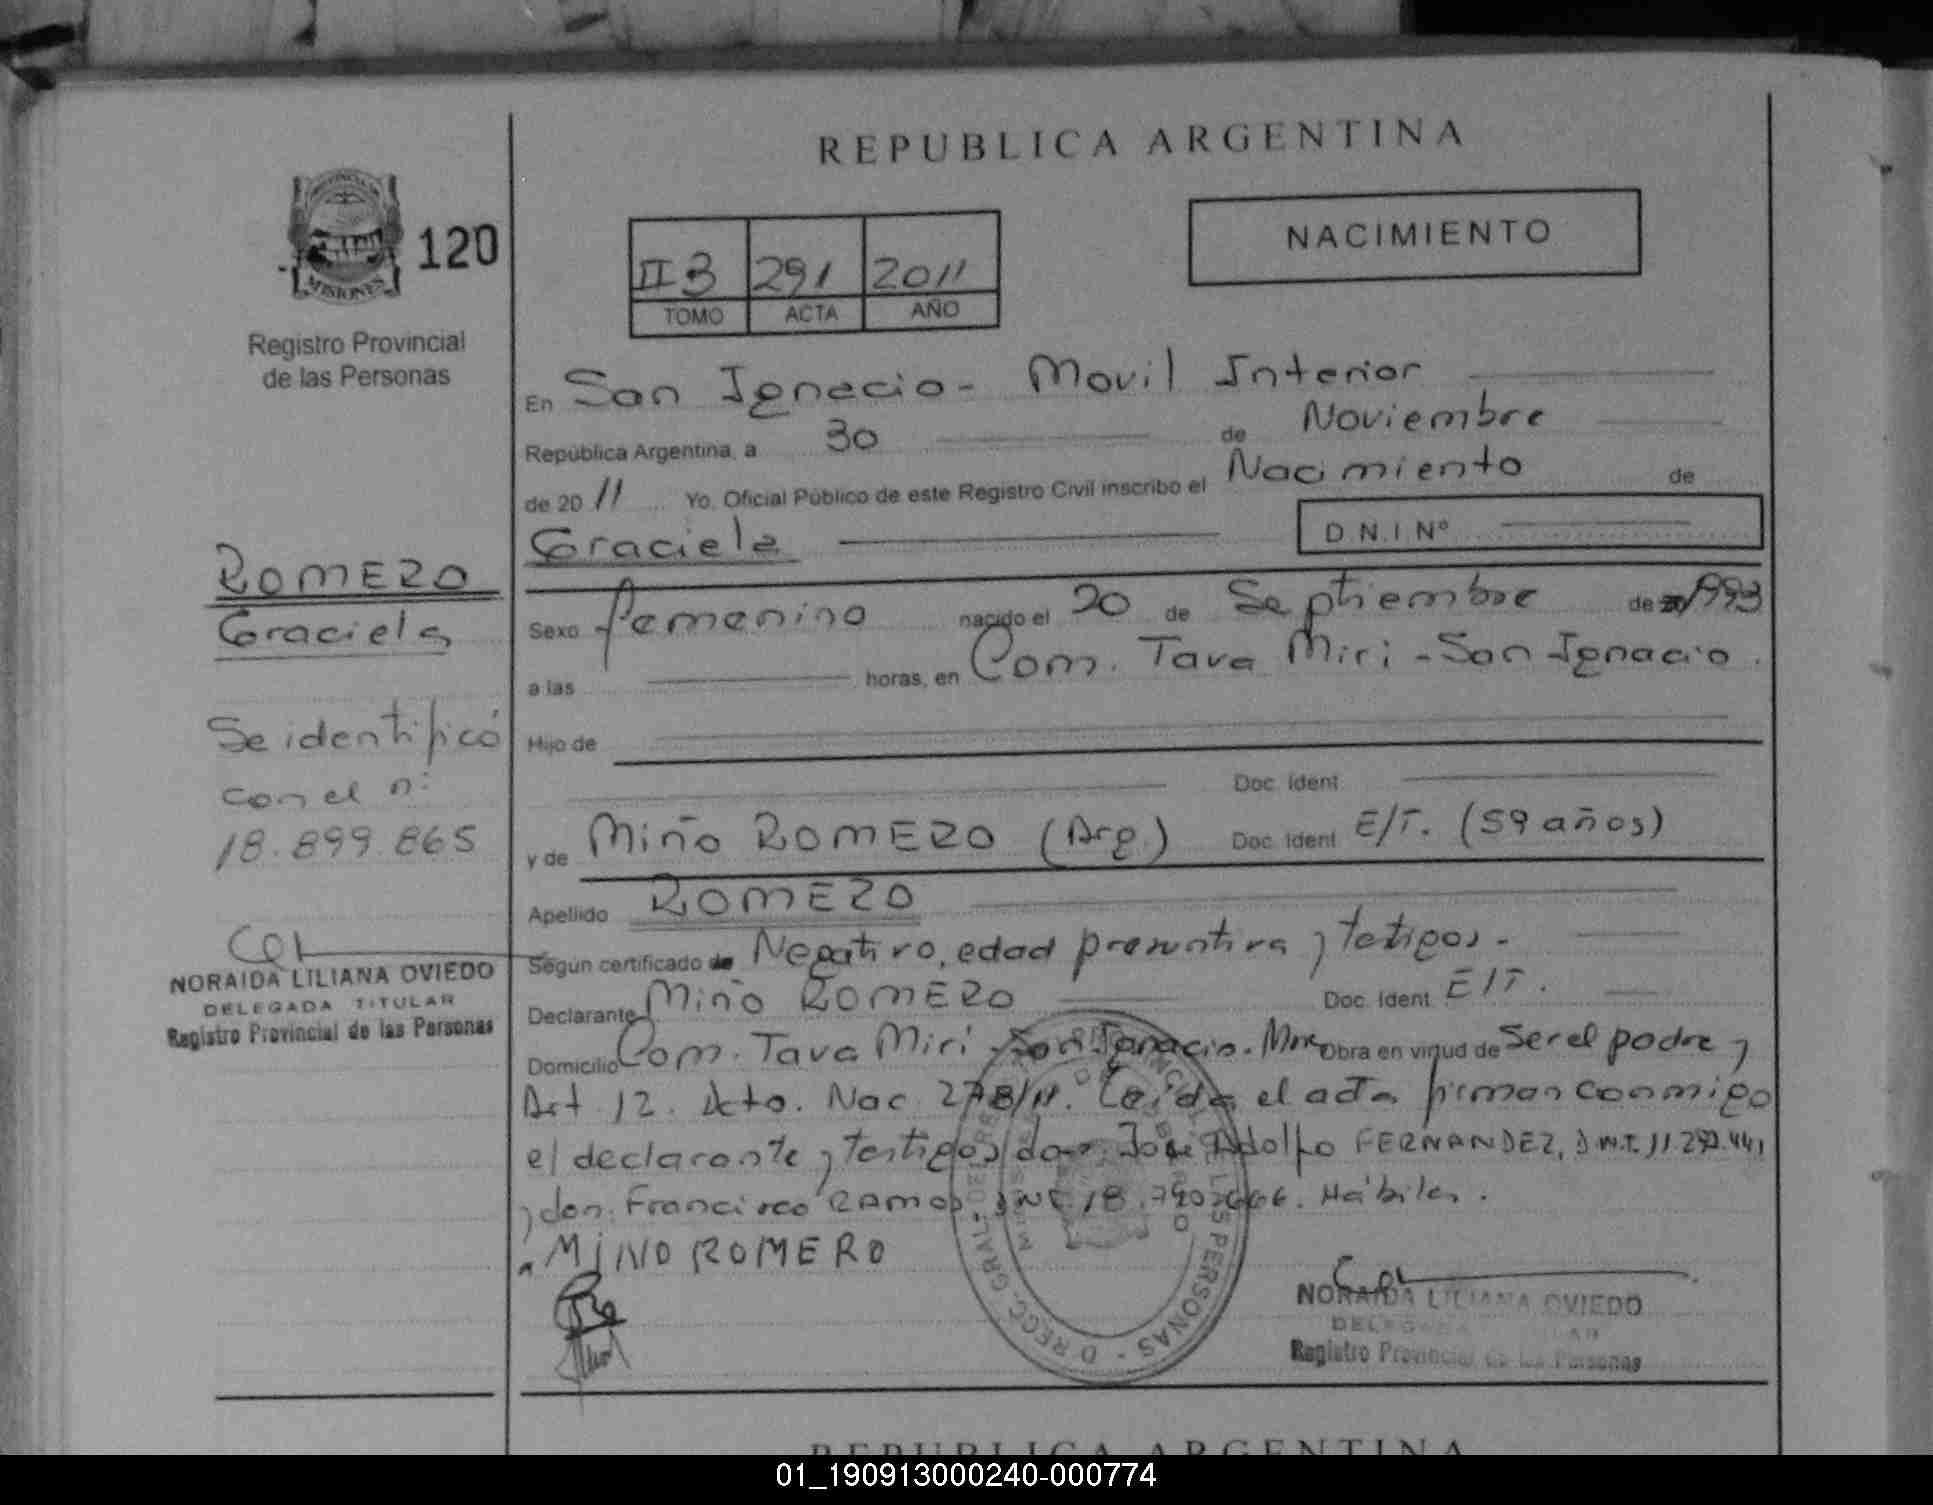 REPUBLICA ARGENTINA
PROVINCIA DE
MISIONES
120
Registro Provincial
de las Personas
II B 291 2011
TOMO ACTA AÑO
NACIMIENTO
En San Ignacio - Movil Interior
República Argentina, a 30 de Noviembre
de 20 11 Yo, Oficial Público de este Registro Civil inscribo el Nacimiento de
Graciela D.N.I Nº
Sexo femenino nacido el 20 de Septiembre de 1993
a las horas, en Com. Tava Miri - San Ignacio.
Hijo de
Doc. Ident.
y de Miño ROMERO (Arg.) Doc. Ident. E/T. (59 años)
Apellido ROMERO
Según certificado de Negativo, edad presuntiva y testigos.
Declarante Miño ROMERO Doc. Ident. E/T.
Domicilio Com. Tava Miri - San Ignacio. Mnes Obra en virtud de Ser el padre y
Art 12. Dcto. Nac. 278/11. Leída el acta firman conmigo
el declarante y testigos don José Adolfo FERNANDEZ, D.N.I. 11.292.441
y don Francisco RAMOS, DNI 18. Hábiles.
MINO ROMERO
NORAIDA LILIANA OVIEDO
DELEGADA TITULAR
Registro Provincial de las Personas
ROMERO
Graciela
Se identificó
con el nº
18.899.865
NORAIDA LILIANA OVIEDO
DELEGADA TITULAR
Registro Provincial de las Personas
REPUBLICA ARGENTINA
01_190913000240-000774